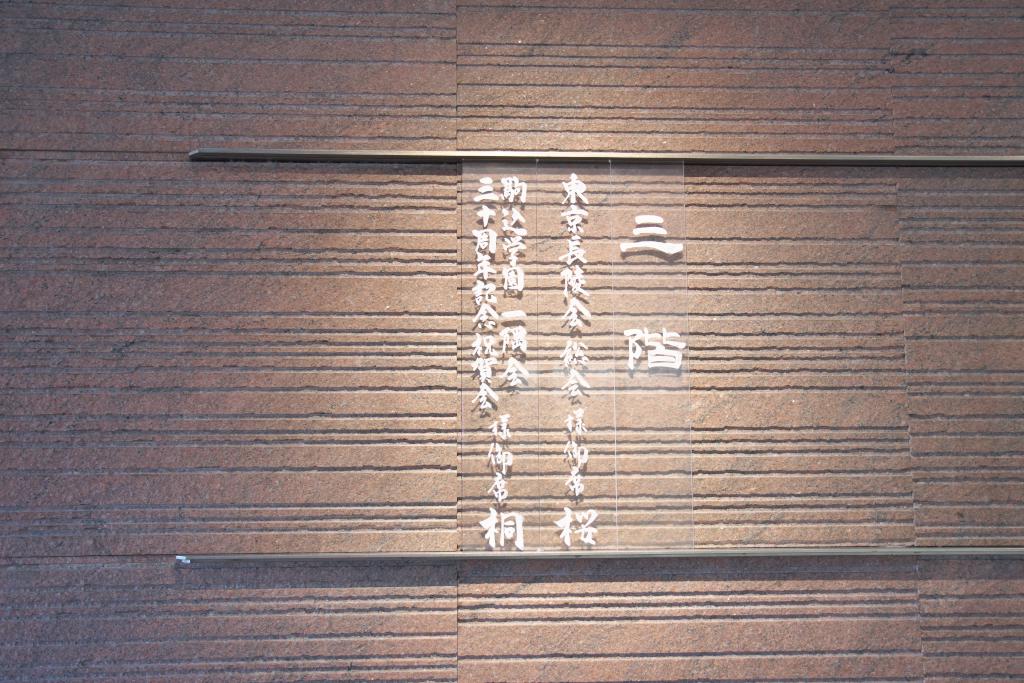 三階
東京長陵会総会 様御席 桜
駒込学園 一隅会
三十周年記念祝賀会
様御席 桐